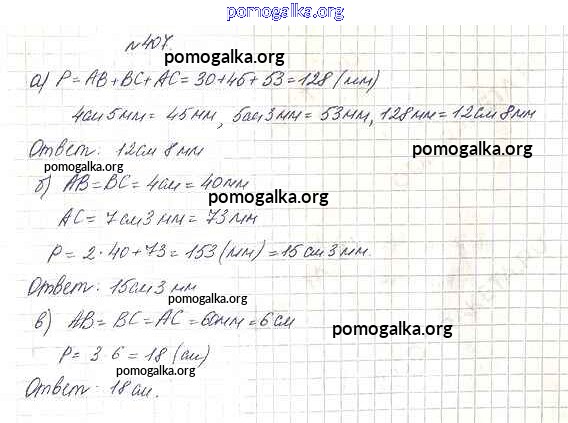 pomogalka.org
№407.
pomogalka.org
а) P = AB + BC + AC = 30 + 45 + 53 = 128 (мм)
4см 5мм = 45мм, 5см 3мм = 53мм, 128мм = 12см 8мм
Ответ: 12см 8мм
pomogalka.org
pomogalka.org
б) AB = BC = 4см = 40мм
pomogalka.org
AC = 7см 3мм = 73мм
P = 2 · 40 + 73 = 153 (мм) = 15см 3мм.
Ответ: 15см 3мм
pomogalka.org
в) AB = BC = AC = 60мм = 6см
pomogalka.org
P = 3 · 6 = 18 (см)
pomogalka.org
Ответ: 18см.